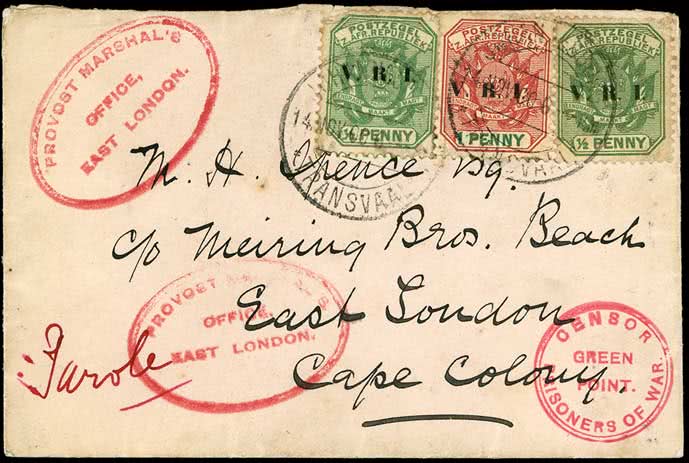 PROVOST MARSHAL'S
OFFICE,
EAST LONDON.
POSTZEGEL
Z. AFR. REPUBLIEK
V. R. I.
EENDRAGT MAAKT MAGT
½ PENNY
POSTZEGEL
Z. AFR. REPUBLIEK
V. R. I.
EENDRAGT MAAKT MAGT
1 PENNY
POSTZEGEL
Z. AFR. REPUBLIEK
V. R. I.
EENDRAGT MAAKT MAGT
½ PENNY
14 NOV
TRANSVAAL
TRANSVAAL
M. H. Spence Esq.
c/o Meiring Bros. Beach
East London
Cape Colony.
PROVOST MARSHAL'S
OFFICE,
EAST LONDON.
Parole
CENSOR
GREEN
POINT.
PRISONERS OF WAR.